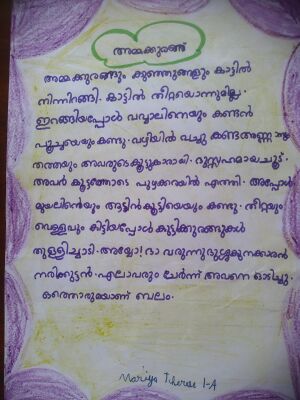 അമ്മക്കുരങ്ങ്
അമ്മക്കുരങ്ങും കുഞ്ഞുങ്ങളും കാട്ടിൽ
നിന്നിറങ്ങി. കാട്ടിൽ തീറ്റയൊന്നുമില്ല.
ഇറങ്ങിയപ്പോൾ വവ്വാലിനെയും കണ്ടൻ
പൂച്ചയെയുംകണ്ടു. വഴിയിൽ വച്ചു കണ്ട അണ്ണാനും
തത്തയും അവരുടെകൂട്ടുകാരായി. ദുസ്സഹമായചൂട്.
അവർ കൂട്ടത്തോടെ പുഴക്കരയിൽ എത്തി. അപ്പോൾ
മുയലിൻെയും ആട്ടിൻകുട്ടിയെയും കണ്ടു. തീറ്റയും
വെള്ളവും കിട്ടിയപ്പോൾ കുട്ടിക്കുരങ്ങുകൾ
തുള്ളിച്ചാടി. അയ്യോ! ദാ വരുന്നു
നരിക്കുട്ടൻ. എലാവരും ചേർന്ന് അവനെ ഓടിച്ചു.
ഒത്തൊരുമയാണ് ബലം.
Mariya Therese 1-A